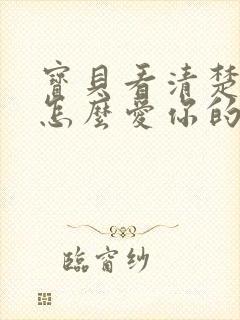 寶貝看清楚
怎麼愛你的
臨窗紗